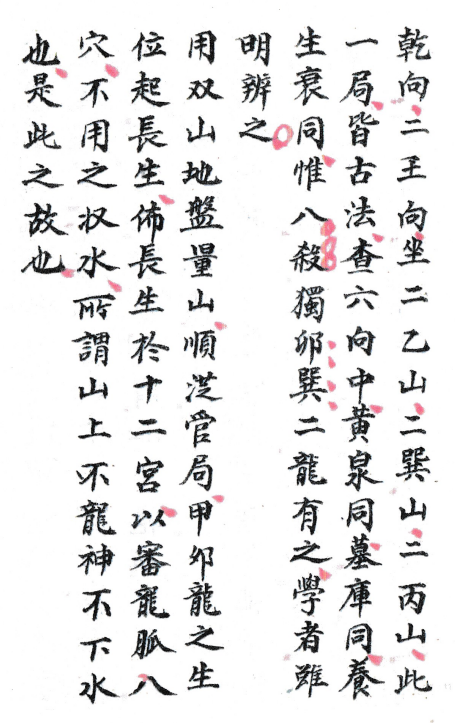 乾向二王向坐二乙山二巽山二丙山此
一局皆古法查六向中黄泉同墓庫同養
生衰同惟八殺獨卯巽二龍有之學者雖
明辨之
用双山地盤量山順从管局甲卯龍之生
位起長生佈長生於十二宮以審龍脈八
穴不用之収水所謂山上不龍神不下水
也是此之故也